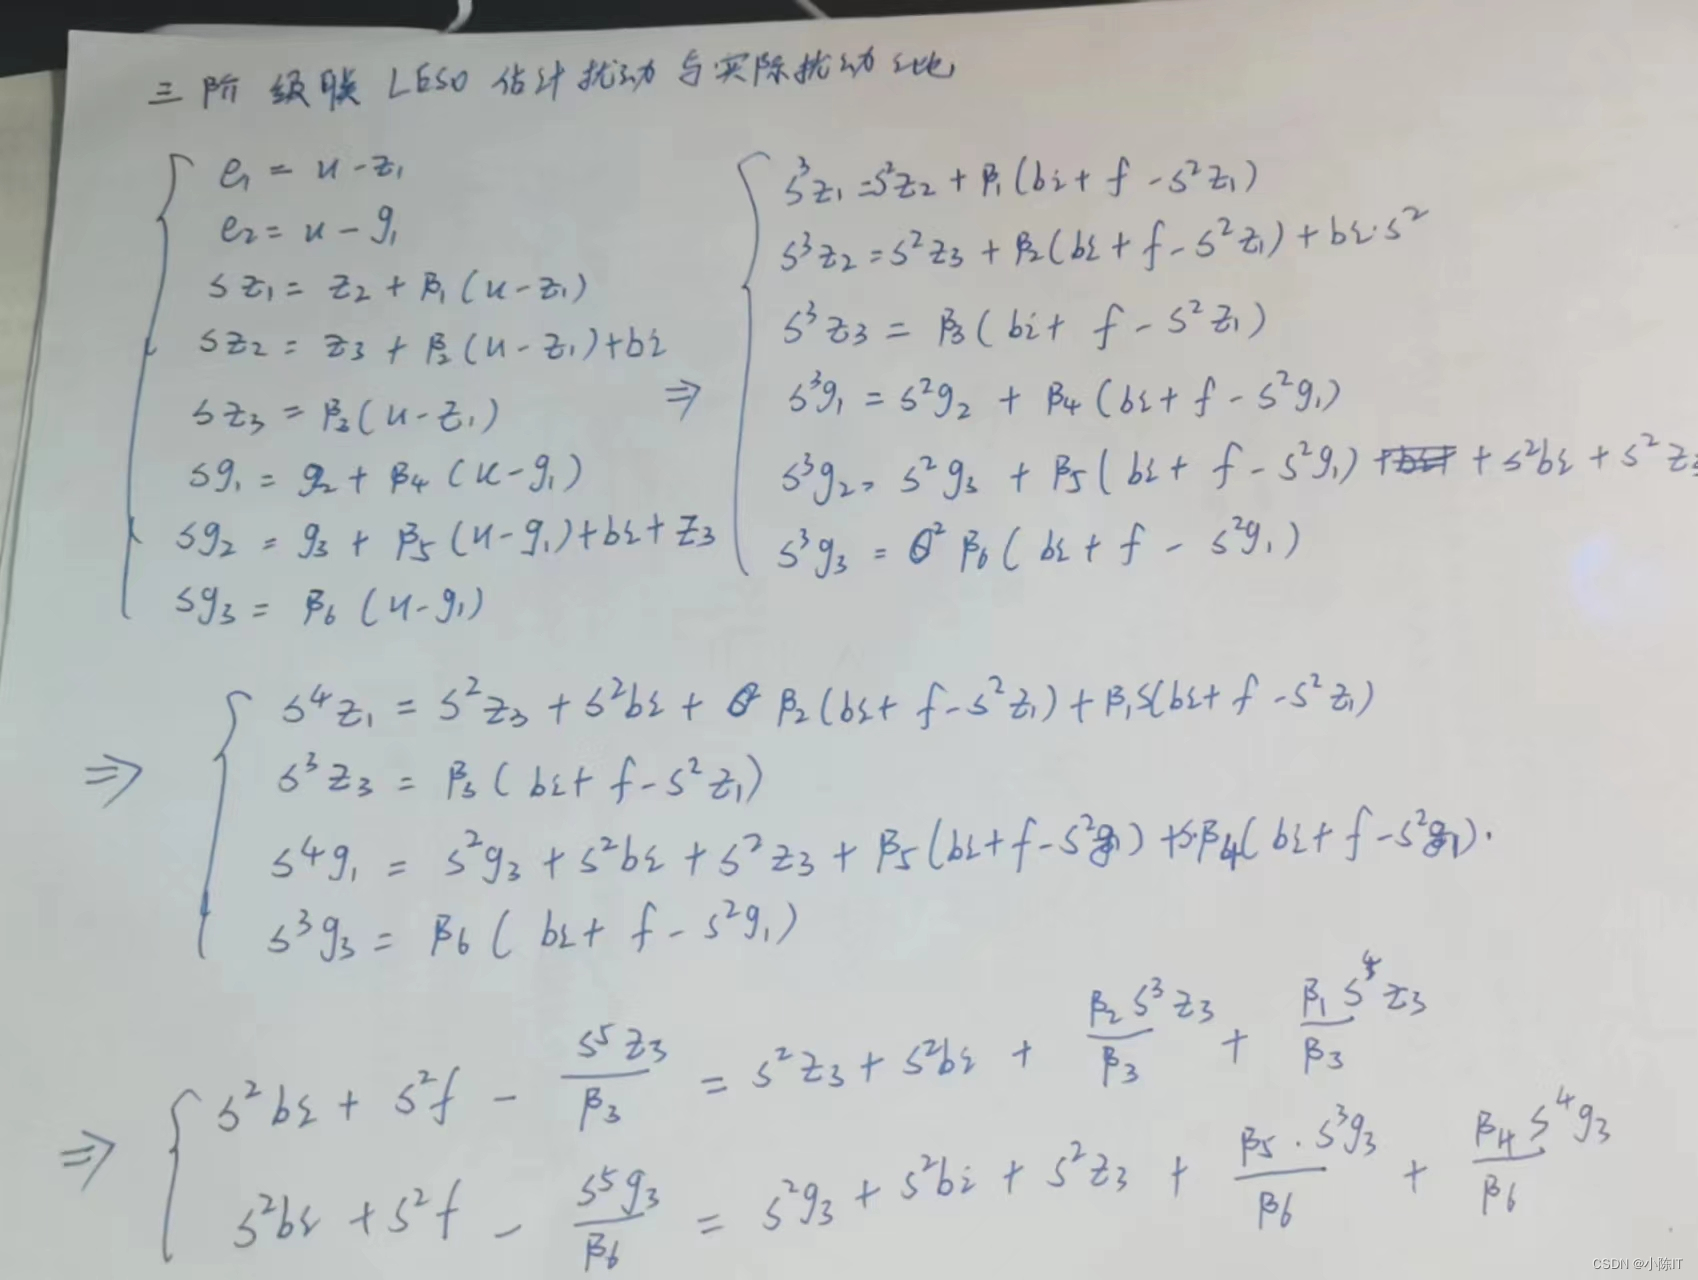 三阶级联 LESO 估计扰动与实际扰动之比
e₁ = u - z₁
e₂ = u - g₁
sz₁ = z₂ + β₁(u - z₁)
sz₂ = z₃ + β₂(u - z₁) + bi
sz₃ = β₃(u - z₁)
sg₁ = g₂ + β₄(u - g₁)
sg₂ = g₃ + β₅(u - g₁) + bi + z₃
sg₃ = β₆(u - g₁)
⇒
s³z₁ = s²z₂ + β₁(bi + f - s²z₁)
s³z₂ = s²z₃ + β₂(bi + f - s²z₁) + bi·s²
s³z₃ = β₃(bi + f - s²z₁)
s³g₁ = s²g₂ + β₄(bi + f - s²g₁)
s³g₂ = s²g₃ + β₅(bi + f - s²g₁) + s²bi + s²z₃
s³g₃ = β₆(bi + f - s²g₁)
⇒
s⁴z₁ = s²z₃ + s²bi + β₂(bi + f - s²z₁) + β₁s(bi + f - s²z₁)
s³z₃ = β₃(bi + f - s²z₁)
s⁴g₁ = s²g₃ + s²bi + s²z₃ + β₅(bi + f - s²g₁) + s·β₄(bi + f - s²g₁).
s³g₃ = β₆(bi + f - s²g₁)
⇒
s²bi + s²f - s⁵z₃/β₃ = s²z₃ + s²bi + β₂s³z₃/β₃ + β₁s⁴z₃/β₃
s²bi + s²f - s⁵g₃/β₆ = s²g₃ + s²bi + s²z₃ + β₅·s³g₃/β₆ + β₄s⁴g₃/β₆
CSDN @小陈IT